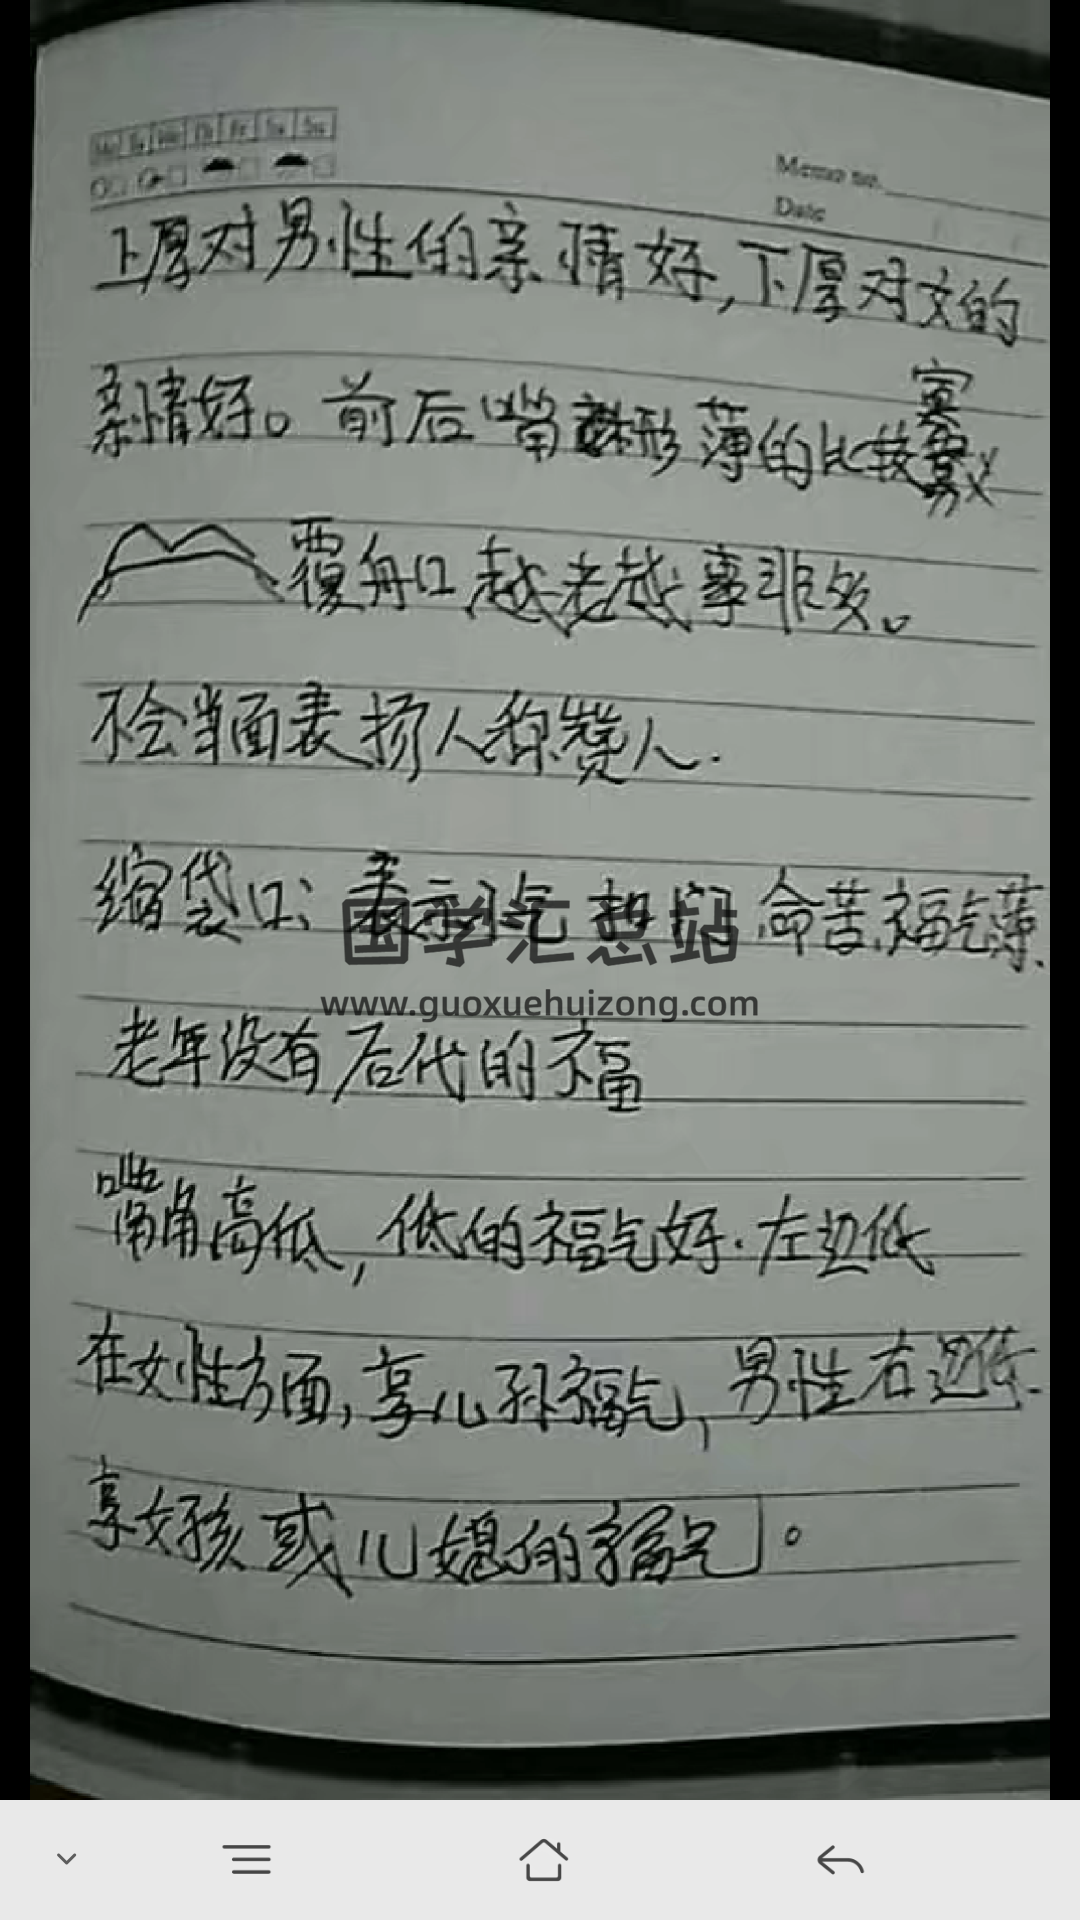 Mo Tu We Th Fr Sa Su
Memo no.
Date
上厚对男性的亲情好,下厚对女的
亲情好。前后嘴 形薄的比较寡
覆舟口越老越事非多。
不会当面表扬人称赞人.
缩袋口: 命苦.福气薄.
国学汇总站
www.guoxuehuizong.com
老年没有后代的福
嘴角高低,低的福气好.左边低
在女性方面,享儿孙福气,男性右边低.
享女孩或儿媳的福气。